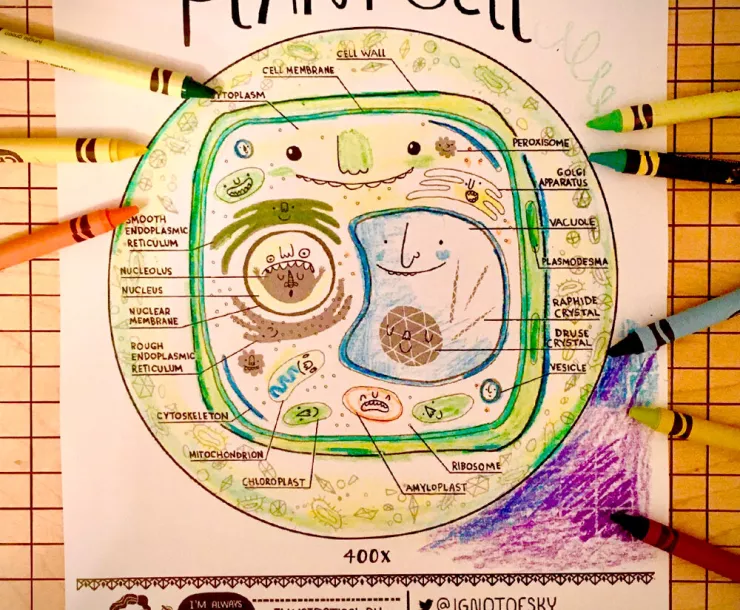 PLANT CELL
CELL WALL
CELL MEMBRANE
CYTOPLASM
PEROXISOME
GOLGI
APPARATUS
VACUOLE
PLASMODESMA
RAPHIDE
CRYSTAL
DRUSE
CRYSTAL
VESICLE
SMOOTH
ENDOPLASMIC
RETICULUM
NUCLEOLUS
NUCLEUS
NUCLEAR
MEMBRANE
ROUGH
ENDOPLASMIC
RETICULUM
CYTOSKELETON
MITOCHONDRION
CHLOROPLAST
AMYLOPLAST
RIBOSOME
400X
I'M ALWAYS
ILLUSTRATION BY
@IGNOTOFSKY